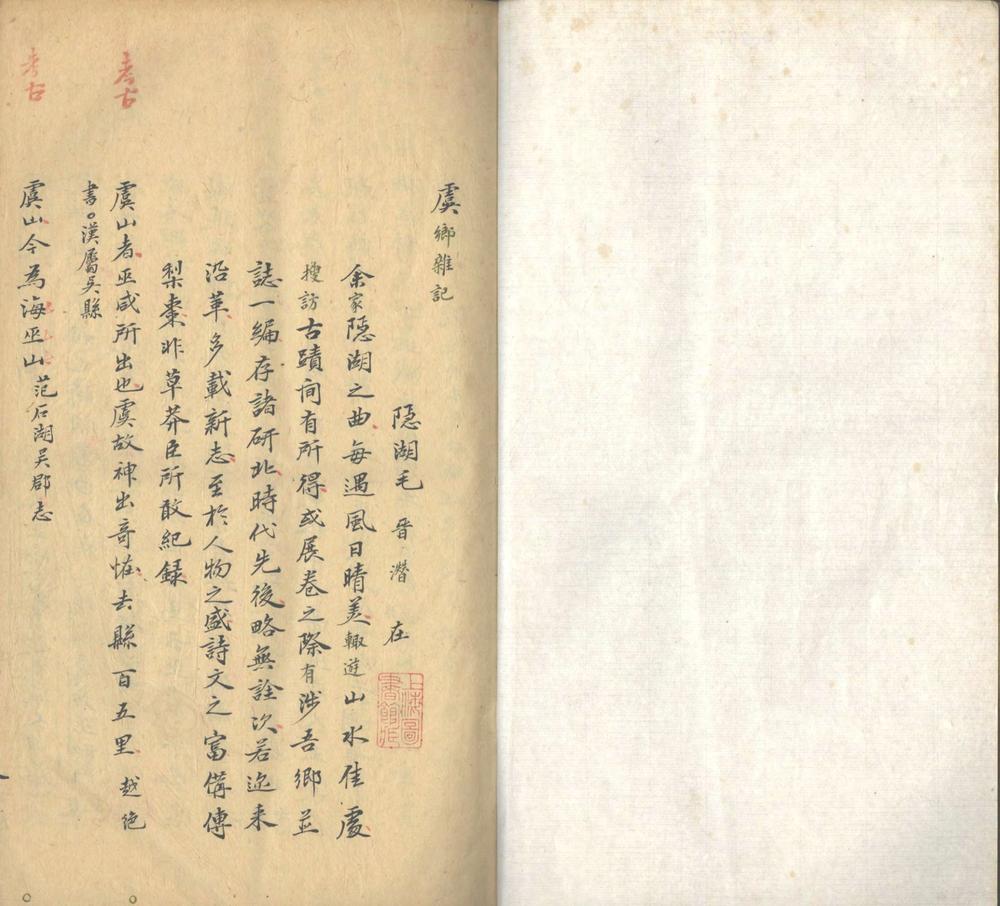 虞鄉雜記
隱湖毛晉潛在
余家隱湖之曲每遇風日晴美輙遊山水佳處
搜訪古蹟間有所得或展卷之際有涉吾鄉並
誌一編存諸研北時代先後略無詮次若迩来
沿革多載新志至於人物之盛詩文之富備傳
梨棗非草莽臣所敢紀録
虞山者巫咸所出也虞故神出竒恠去縣百五里越絶
書漢屬吳縣
虞山今為海巫山范石湖吳郡志
考古
考古
上海圖書館藏